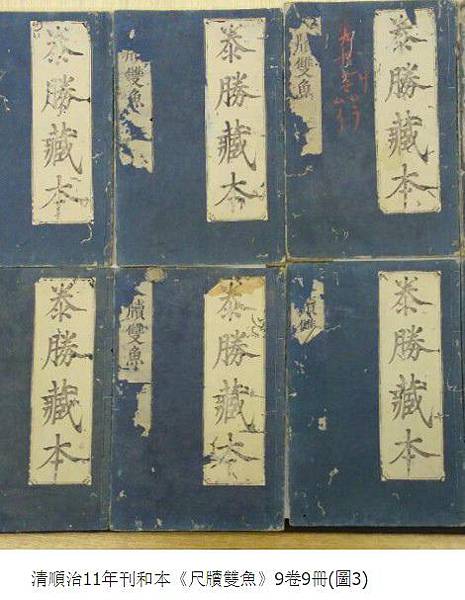 泰勝藏本
雙魚
泰勝藏本
雙魚
泰勝藏本
泰勝藏本
牘雙魚
泰勝藏本
泰勝藏本
清順治11年刊和本《尺牘雙魚》9卷9冊(圖3)